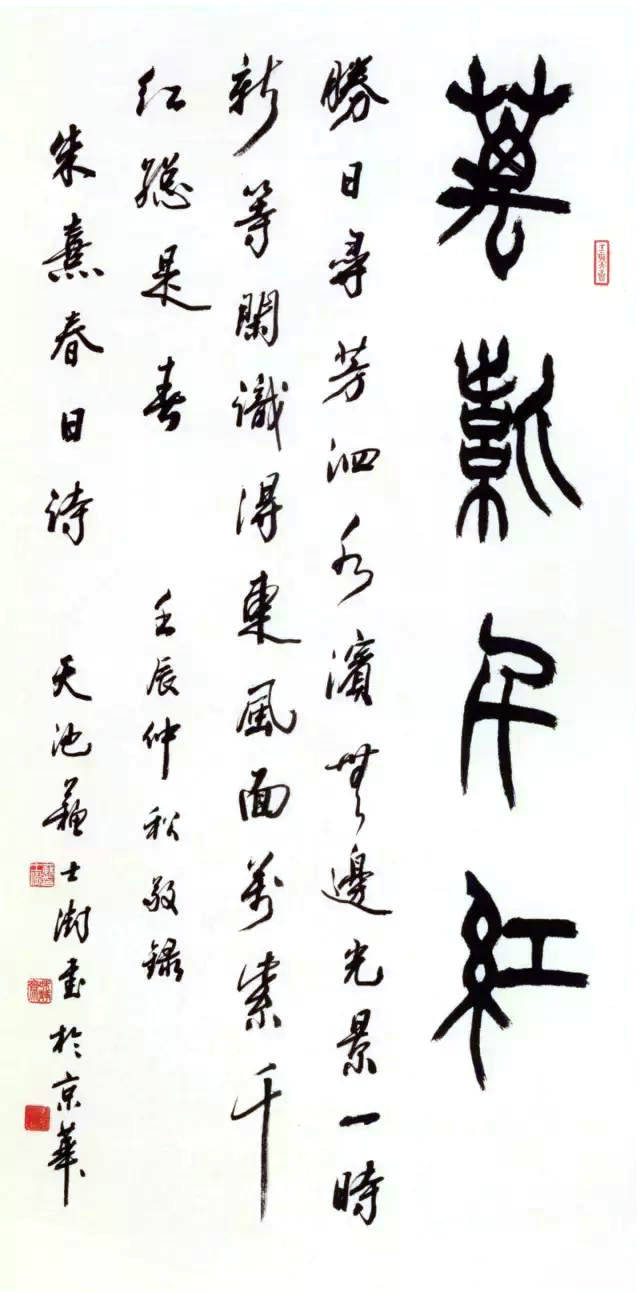 萬紫千紅
勝日尋芳泗水濱無邊光景一時
新等閑識得東風面萬紫千
紅總是春　壬辰仲秋敬錄
朱熹春日詩　天池蘇士澍書於京華